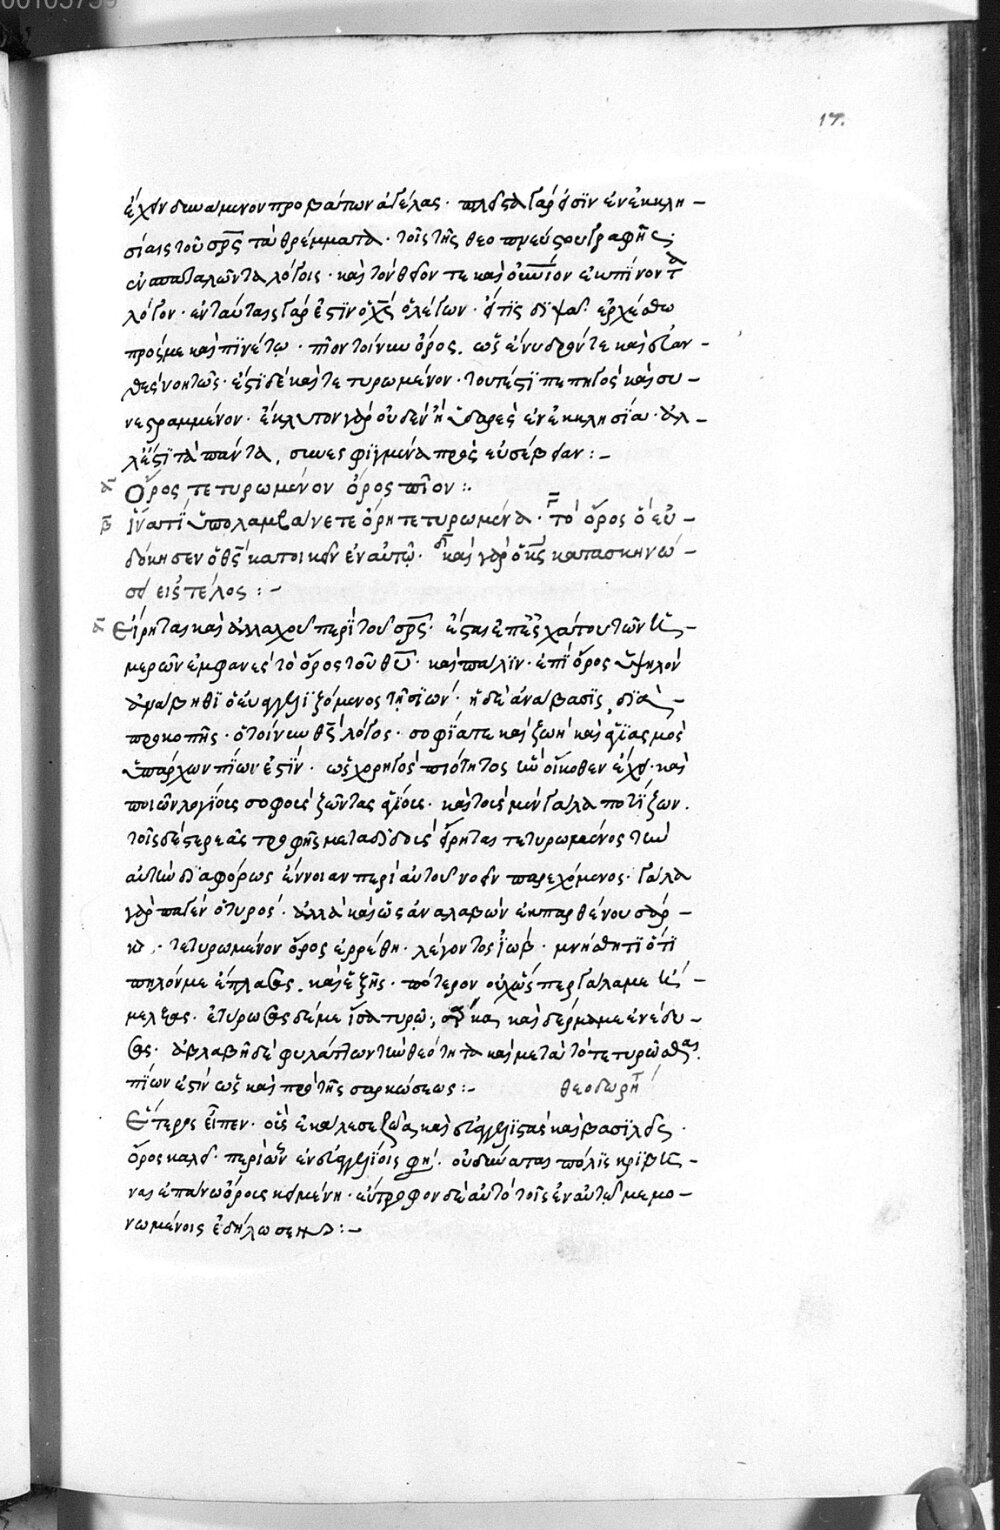 17.
ἔχειν δυναμένον προβάτων ἀγέλας · πλεῖστα γάρ εἰσϊν ἐν ἐκκλη -
σίαις τοῦ σρ̅ς τὰ θρέμματα · τοῖς τῆς θεοπνεύστου γραφῆς
λόγοις · καὶ τὸν θεῖόν τε καὶ οὐνιον ἐκπίνοντα
λόγον · ἐν ταύταις γάρ ἐστϊν ὁ χς̅ ὁ λέγων · εἴ τϊς δϊψᾶ ἐρχέσθω
πρός με καὶ πϊνέτω · πῖον τοίνυν ὄρος . ὡς ἔνυδρόν τε καὶ εὐαν -
θὲς νοητῶς · ἐστϊ δὲ καὶ τετυρωμένον · τουτέστϊ πεπηγὸς καὶ συ -
νεστραμμένον · ἔκλυτον γὰρ οὐδὲν ἢ ὑδαρὲς ἐν ἐκκλησίᾳ · ἀλ -
λ' ἔστϊ τὰ πάντα , συνεσφϊγμένα πρὸς εὐσέβειαν : -
Ὄρος τετυρωμένον ὄρος πῖον :.
ἵνα τϊ ὑπολαμβάνετε ὄρη τετυρωμένα · τὸ ὄρος ὃ εὐ -
δόκησεν ὁ θς̅ κατοικεῖν ἐν αὐτῷ · καὶ γὰρ ὁ κς̅ κατασκηνώ -
σει εἰς τέλος : -
Εἴρηται καὶ ἀλλαχοῦ περὶ τοῦ σρ̅ς · ἔσται ἐπ' ἐσχάτου τῶν ἡ -
μερῶν ἐμφανὲς τὸ ὄρος τοῦ θυ̅ · καὶ πάλϊν · ἐπ' ὄρος ὑψηλὸν
ἀνάβηθϊ ὁ εὐαγγελϊζόμενος τῇ σϊών · ἡ δὲ ἀνάβασϊς , δϊὰ
προκοπῆς · ὁ τοίνυν θς̅ λόγος · σοφία τε καὶ ζωὴ καὶ ἁγϊασμὸς
ὑπάρχων πίων ἐστϊν · ὡς χορηγὸς πιότητος ἣν οἴκοθεν ἔχει · καὶ
ποιῶν λογίοις σοφοὺς ζῶντας ἁγίους · καὶ τοὺς μὲν γάλα ποτϊζων .
τοῖς δὲ στερεᾶς τροφῆς μεταδϊδοὺς εἴρηται τετυρωμένος τὴν
αὐτὴν δϊαφόρως ἔννοιαν περὶ αὐτοῦ νοεῖν παρεχόμενος · γάλα
γὰρ παγὲν ὁ τυρός · ἀλλὰ καὶ ὡς ἀναλαβὼν ἐκ παρθένου σάρ -
κα · τετυρωμένον ὄρος ἐρρέθη · λέγοντος ἰώβ · μνήσθητϊ ὅτϊ
πηλόν με ἔπλασας . καὶ ἑξῆς · πότερον οὐχ ὥσπερ γάλα με ἤ -
μελξας · ἐτύρωσας δέ με ἴσα τυρῷ ; σάρκας καὶ δέρμα με ἐνέδυ -
σας · ἀβλαβῆ δὲ φυλάττων τὴν θεότητα καὶ μετὰ τὸ τετυρῶσθαι
πίων ἐστὶν ὡς καὶ πρὸ τῆς σαρκώσεως : - θεοδωρήτ
Ἕτερος εἶπεν · οὓς ἐκάλεσε καὶ εὐαγγελϊστὰς καὶ βασϊλεῖς ·
ὄρος καλεῖ · περὶ ὧν ἐν εὐαγγελϊοις φη · οὐ δύναται πόλϊς κρϊβῆ -
ναι ἐπάνω ὄρους κειμένη · εὔτροφον δὲ αὐτὸ τοῖς ἐν αὐτῷ μεμο -
νωμένοις ἐδήλωσεν : -